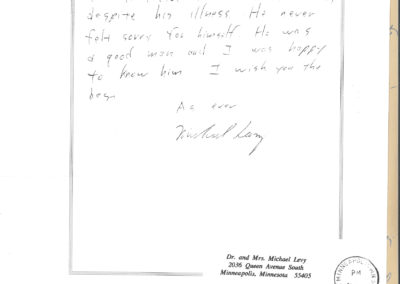 despite his illness. He never
felt sorry for himself. He was
a good man and I was happy
to know him. I wish you the
best
As ever
Michael Levy
Dr. and Mrs. Michael Levy
2036 Queen Avenue South
Minneapolis, Minnesota 55405
MINNEAPOLIS MN
PM